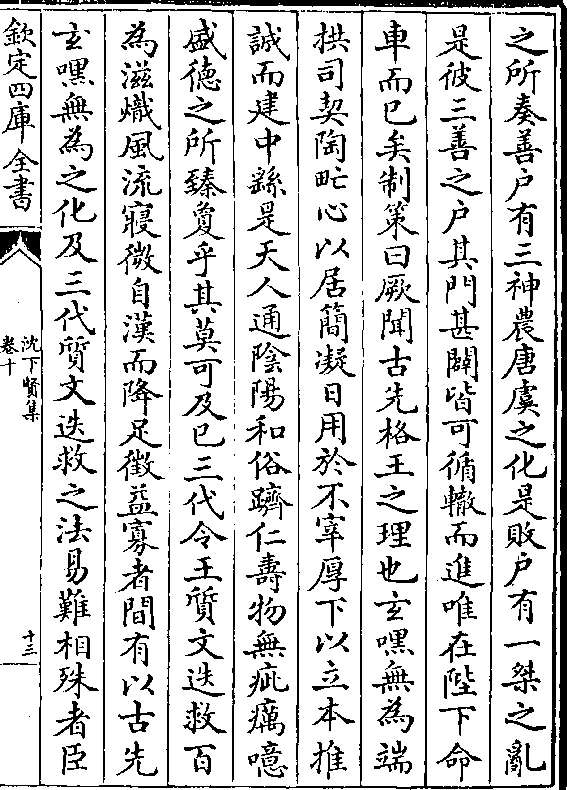 之所奏善户有三神農唐虞之化是敗户有一桀之亂
是彼三善之户其門甚闢皆可循轍而進唯在陛下命
車而已矣制策曰厥聞古先格王之理也玄嘿無為端
拱司契陶甿心以居簡凝日用於不宰厚下以立本推
誠而建中繇是天人通陰陽和俗躋仁壽物無疵癘噫
盛徳之所臻敻乎其莫可及已三代令王質文迭救百
為滋熾風流寖微自漢而降足徵益寡者間有以古先
玄嘿無為之化及三代質文迭救之法易難相殊者臣
欽定四庫全書
沈下賢集
卷十
十三